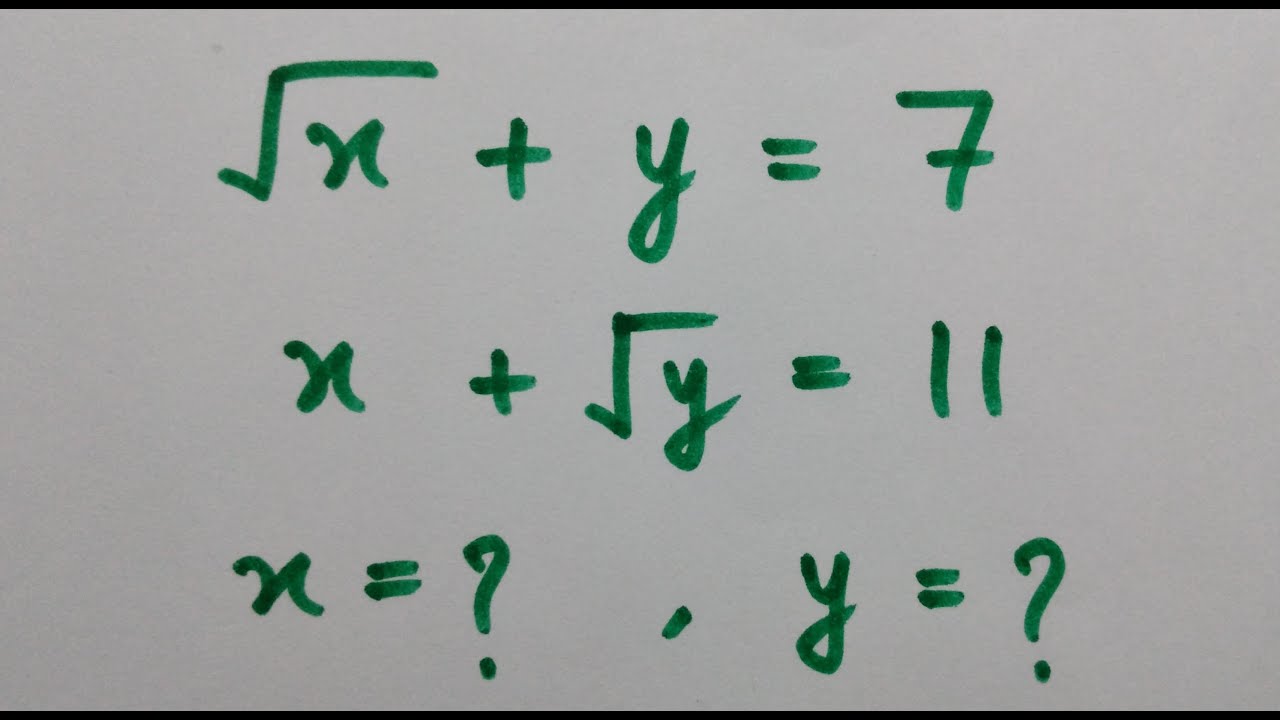 √x + y = 7
x + √y = 11
x = ? , y = ?